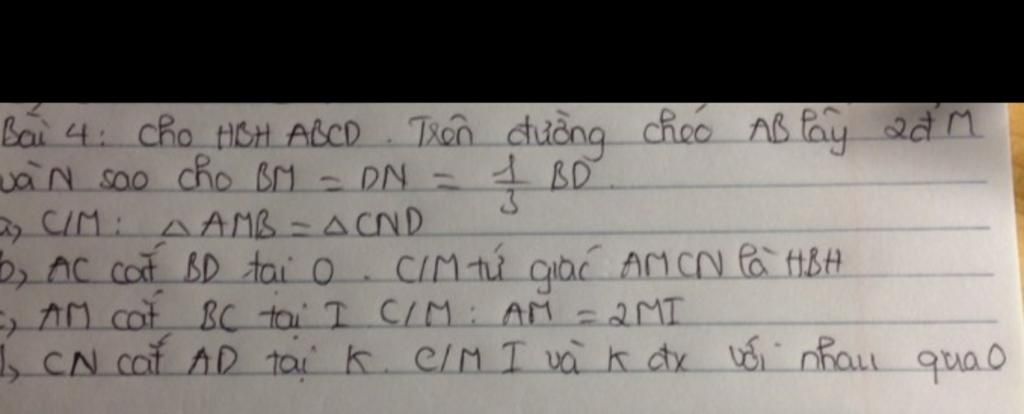 Bài 4: Cho HBH ABCD. Trên đường chéo AB lấy 2đ' M
và N sao cho BM = DN = 1/3 BD.
a, C/M: △ AMB = △ CND
b, AC cắt BD tại O. C/M tứ giác AMCN là HBH
c, AM cắt BC tại I C/M: AM = 2MI
d, CN cắt AD tại K. C/M I và K đx với nhau qua O